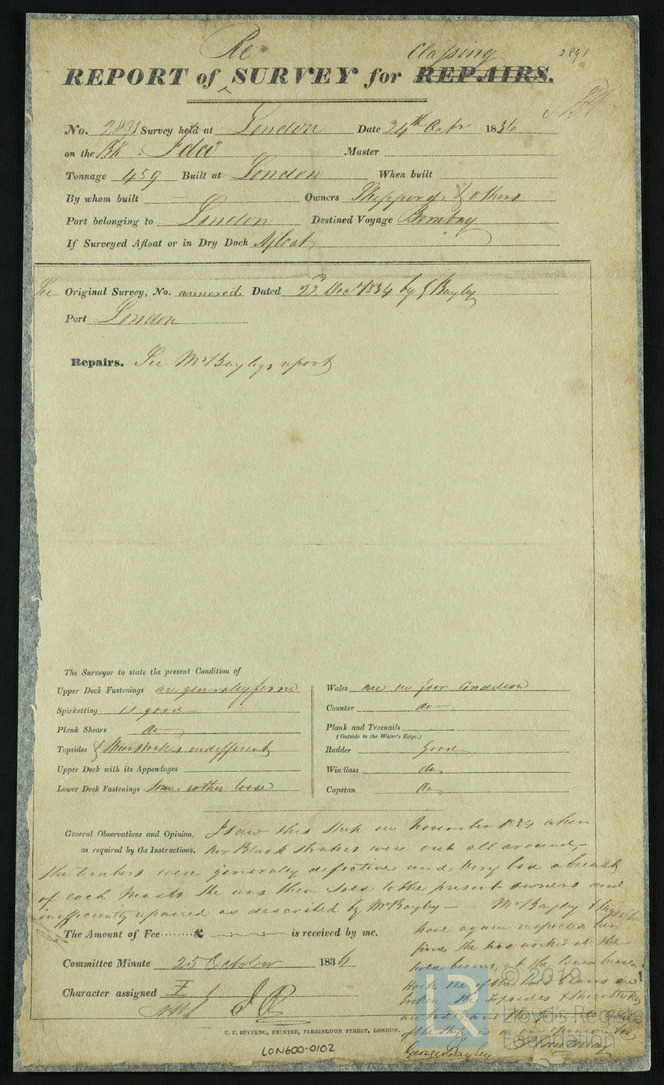 Re Classing 2891
REPORT of SURVEY for REPAIRS.
No. 2891 Survey held at London Date 24th Octr 1836
on the Bk Ida Master
Tonnage 459 Built at London When built
By whom built Owners Shepperd & others
Port belonging to London Destined Voyage Bombay
If Surveyed Afloat or in Dry Dock Afloat
See Original Survey, No. annexed Dated 22d Decr 1834 by G Bayley
Port London
Repairs. See Mr Bayleys report
The Surveyor to state the present Condition of
Upper Deck Fastenings are generally firm
Spirketting is good
Plank Shears do
Topsides & Sheerstrakes indifferent
Upper Deck with its Appendages
Lower Deck Fastenings Some rather loose
Wales are in fair Condition
Counter do
Plank and Treenails
(Outside to the Water's Edge.)
Rudder Good
Windlass do
Capstan do
General Observations and Opinion, I saw this Ship in November 1834 when
as required by the Instructions. her Black strakes were out all around
the timbers were generally defective and very bad abreast
of each Mast. She was then sold to the present owners and
inefficiently repaired as described by Mr Bayley — Mr Bayley & Myself
The Amount of Fee £ is received by me. have again inspected her
find she has worked at the
Committee Minute 25 October 1836
hold beams
Character assigned Æ 1
the topsides &
of the Ship is in our opinion
George Bayley
C. F. SEYFANG, PRINTER, FARRINGDON STREET, LONDON.
LON600-0102
LR © 2019
Lloyd's Register
Foundation